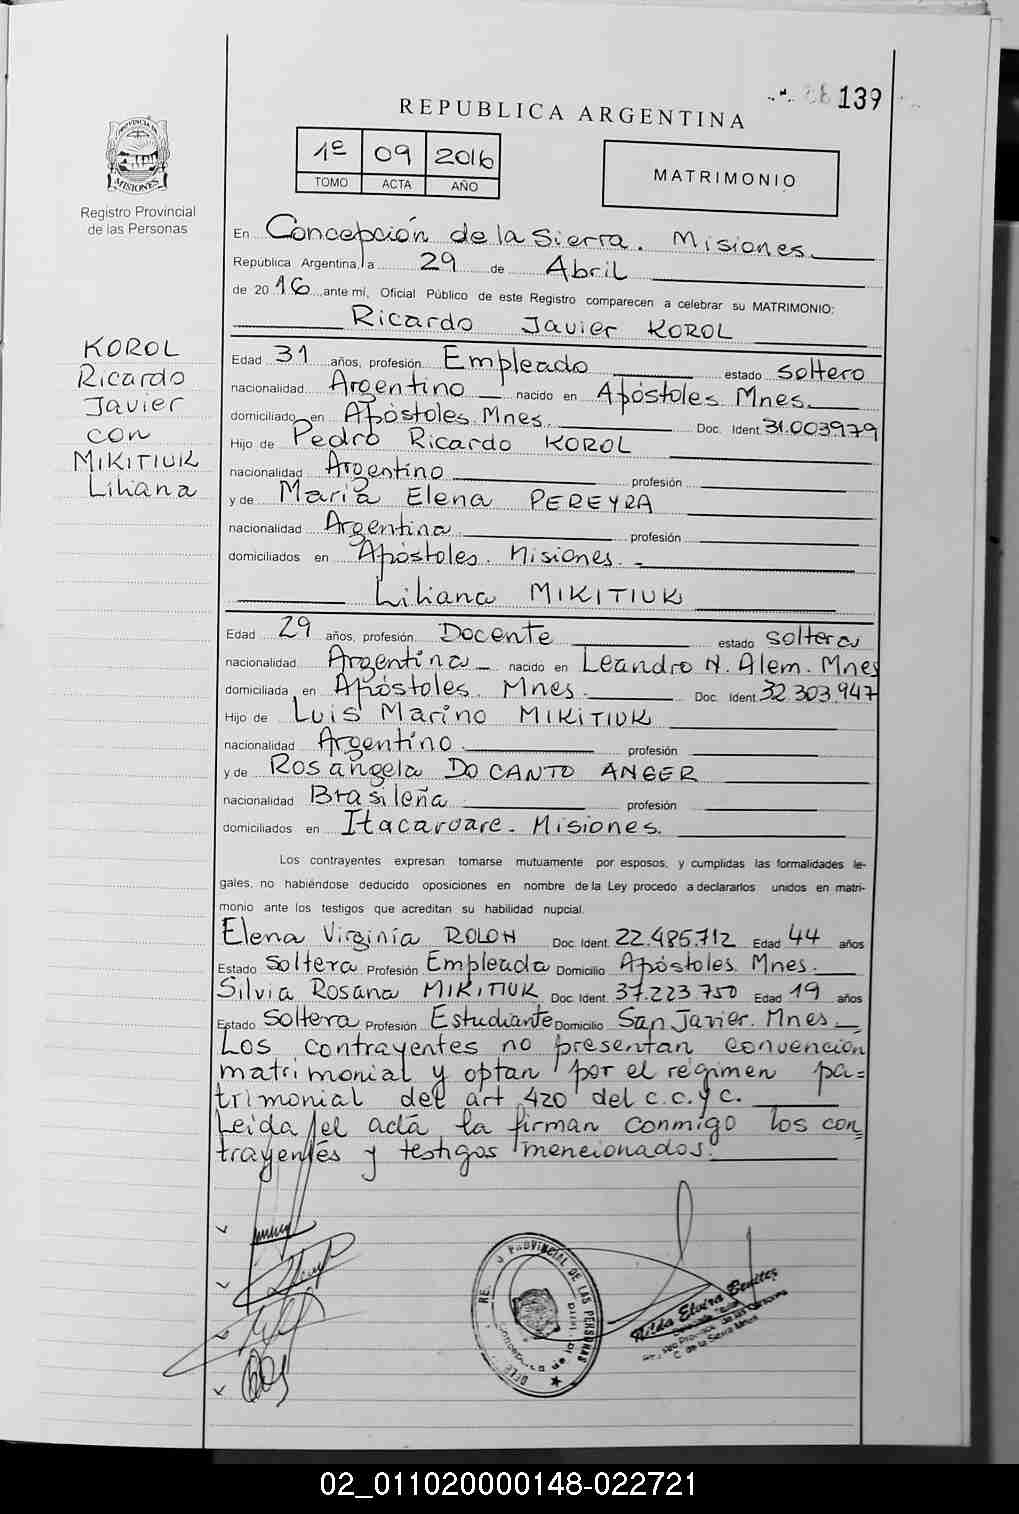 139
REPUBLICA ARGENTINA
1º 09 2016
TOMO ACTA AÑO
MATRIMONIO
PROVINCIA DE
MISIONES
Registro Provincial
de las Personas
En Concepción de la Sierra. Misiones.
República Argentina, a 29 de Abril
de 2016, ante mí, Oficial Público de este Registro comparecen a celebrar su MATRIMONIO:
Ricardo Javier KOROL
KOROL
Ricardo
Javier
con
MIKITIUK
Liliana
Edad 31 años, profesión Empleado estado soltero
nacionalidad Argentino nacido en Apóstoles Mnes.
domiciliado en Apóstoles Mnes. Doc. Ident. 31.003979
Hijo de Pedro Ricardo KOROL
nacionalidad Argentino profesión
y de María Elena PEREYRA
nacionalidad Argentina profesión
domiciliados en Apóstoles. Misiones.
Liliana MIKITIUK
Edad 29 años, profesión Docente estado soltera
nacionalidad Argentina nacido en Leandro N. Alem. Mnes
domiciliada en Apóstoles. Mnes. Doc. Ident. 32.303.947
Hijo de Luis Marino MIKITIUK
nacionalidad Argentino. profesión
y de Rosangela DO CANTO ANGER
nacionalidad Brasileña profesión
domiciliados en Itacaruare. Misiones.
Los contrayentes expresan tomarse mutuamente por esposos, y cumplidas las formalidades le-
gales, no habiéndose deducido oposiciones en nombre de la Ley procedo a declararlos unidos en matri-
monio ante los testigos que acreditan su habilidad nupcial.
Elena Virginia ROLON Doc. Ident. 22.485.712 Edad 44 años
Estado Soltera Profesión Empleada Domicilio Apóstoles. Mnes.
Silvia Rosana MIKITIUK Doc. Ident. 37.223.750 Edad 19 años
Estado Soltera Profesión Estudiante Domicilio San Javier. Mnes.
Los contrayentes no presentan convención
matrimonial y optan por el régimen pa=
trimonial del art 420 del c.c.y c.
Leída el acta la firman conmigo los con=
trayentes y testigos mencionados.
PROVINCIAL DE LAS PERSONAS
Hilda Elvira Benitez
C. de la Sierra Mnes
02_011020000148-022721